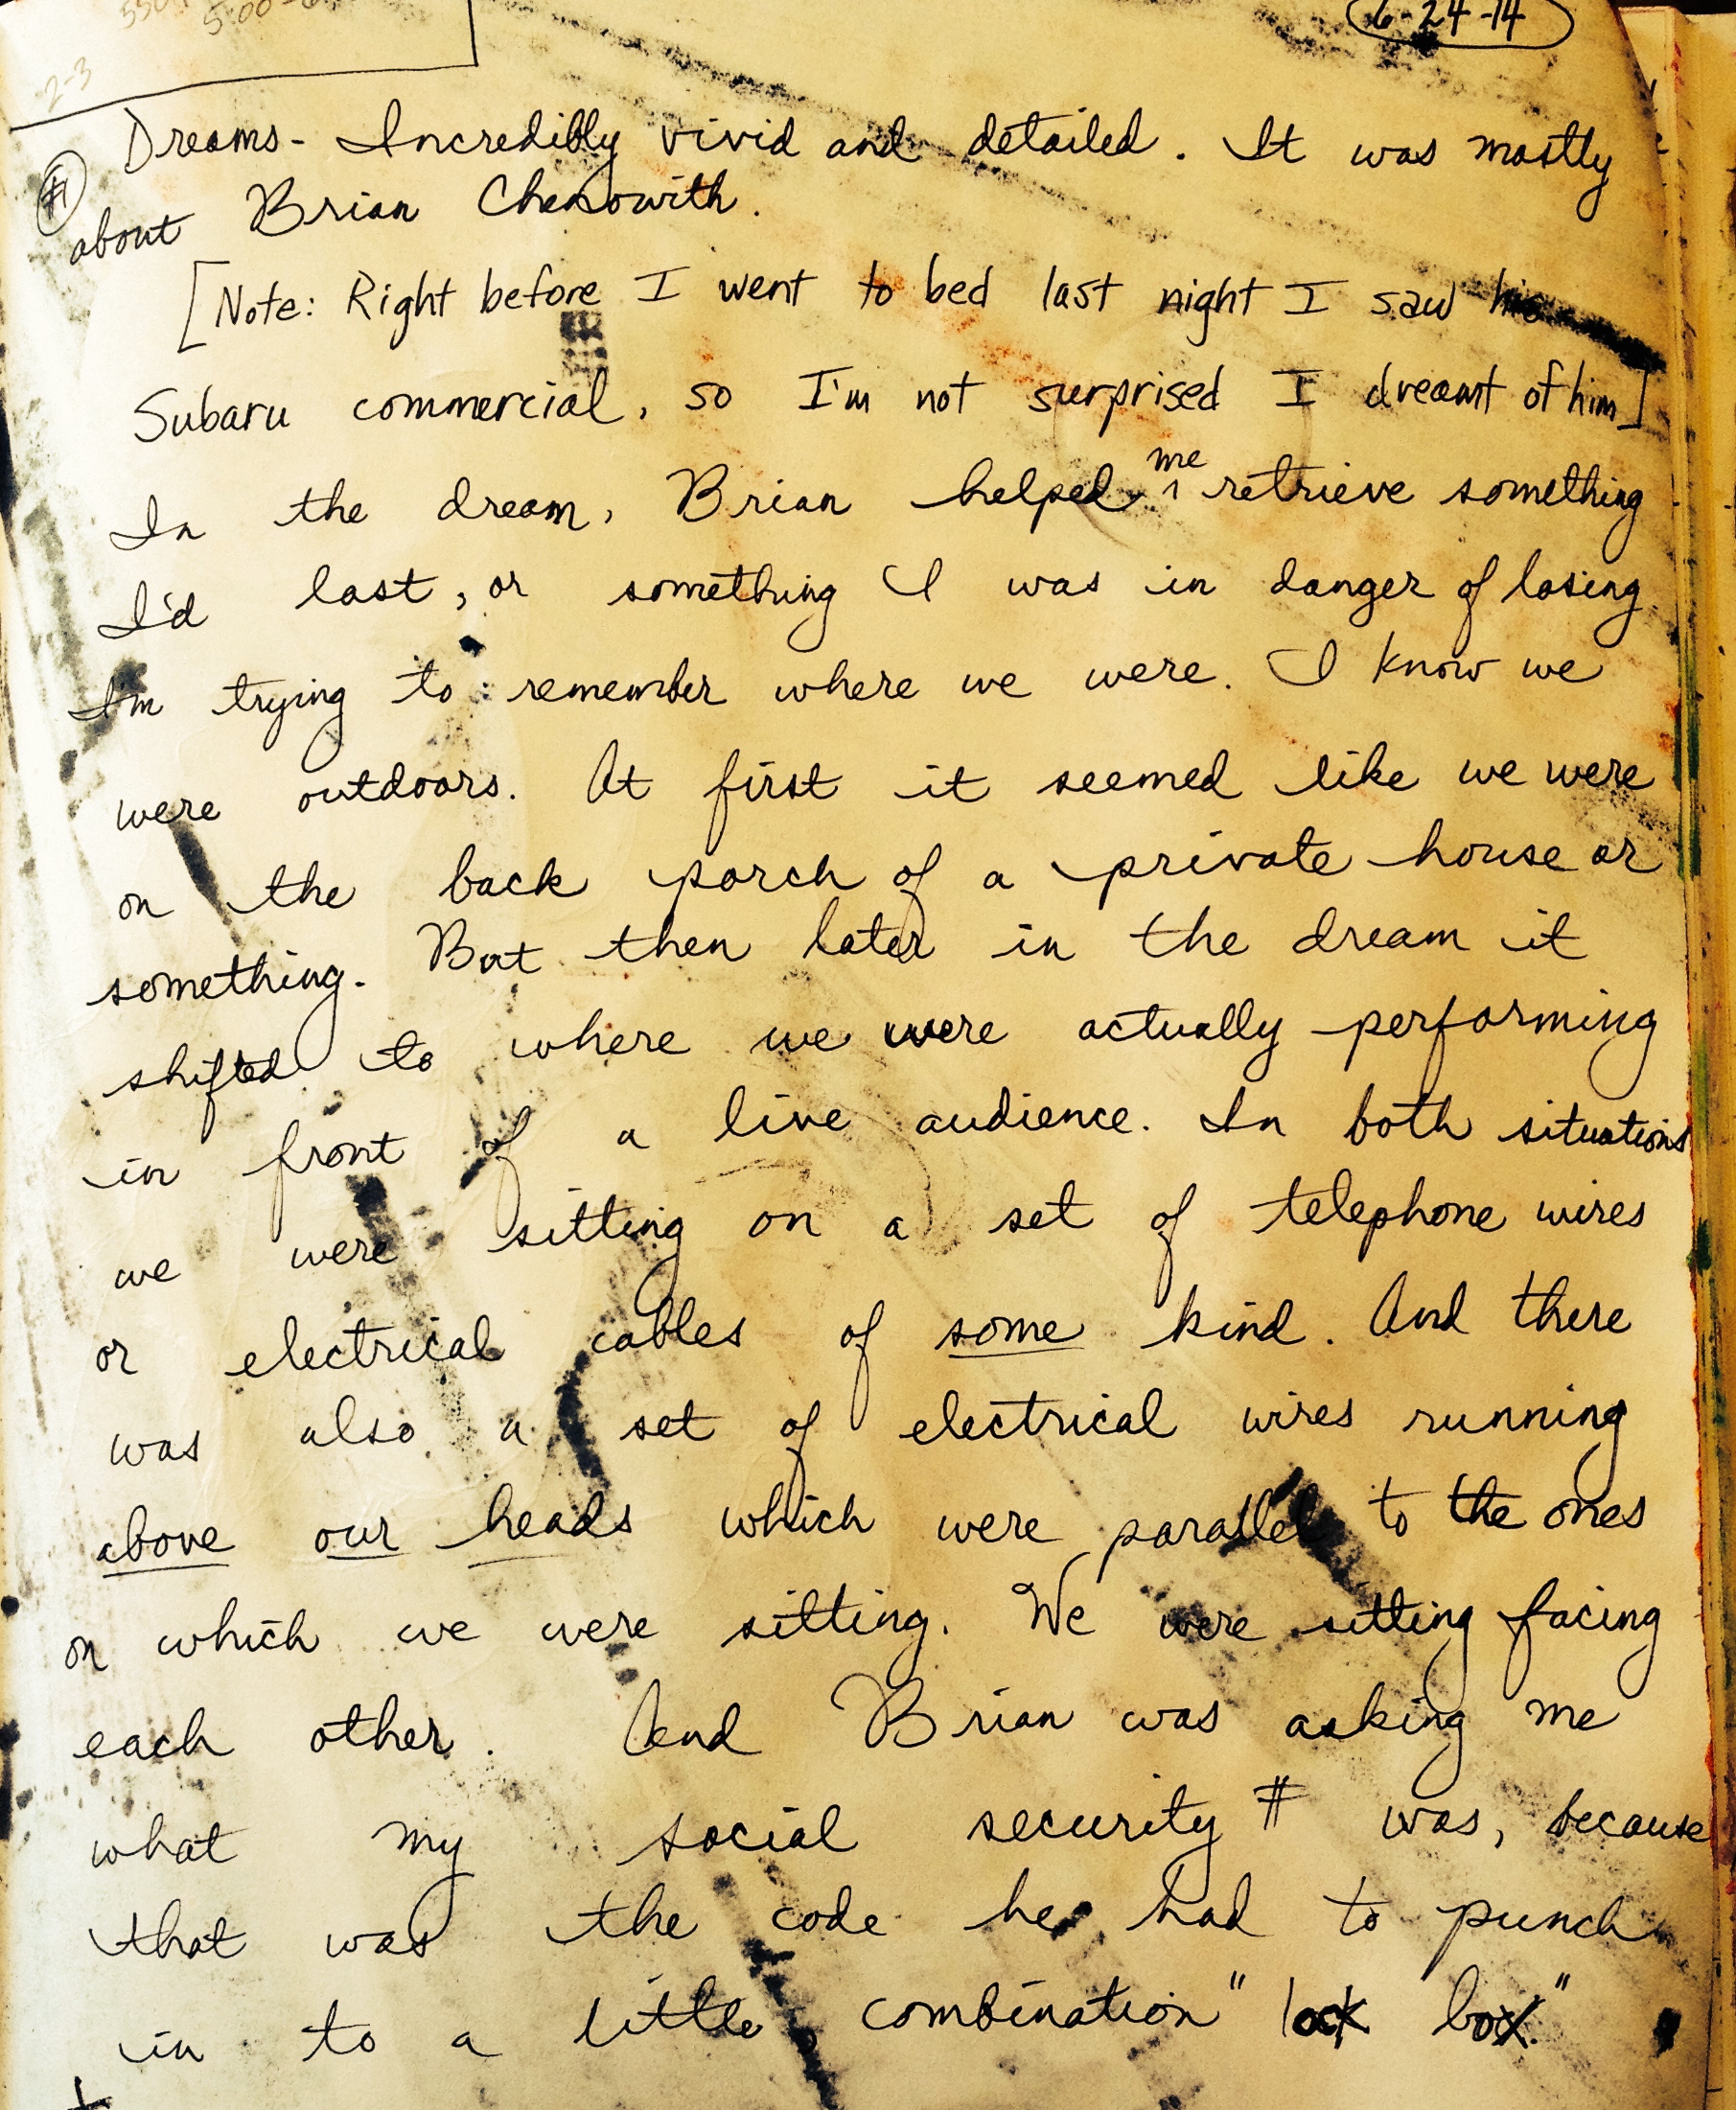 6-24-14
5:00
2-3
Dreams - Incredibly vivid and detailed. It was mostly
#1
about Brian Chenowith.
[Note: Right before I went to bed last night I saw his
Subaru commercial, so I'm not surprised I dreamt of him]
In the dream, Brian helped me retrieve something
I'd lost, or something I was in danger of losing
I'm trying to remember where we were. I know we
were outdoors. At first it seemed like we were
on the back porch of a private house or
something. But then later in the dream it
shifted to where we were actually performing
in front of a live audience. In both situations
we were sitting on a set of telephone wires
or electrical cables of some kind. And there
was also a set of electrical wires running
above our heads which were parallel to the ones
on which we were sitting. We were sitting facing
each other. And Brian was asking me
what my social security # was, because
that was the code he had to punch
in to a little combination "lock box"